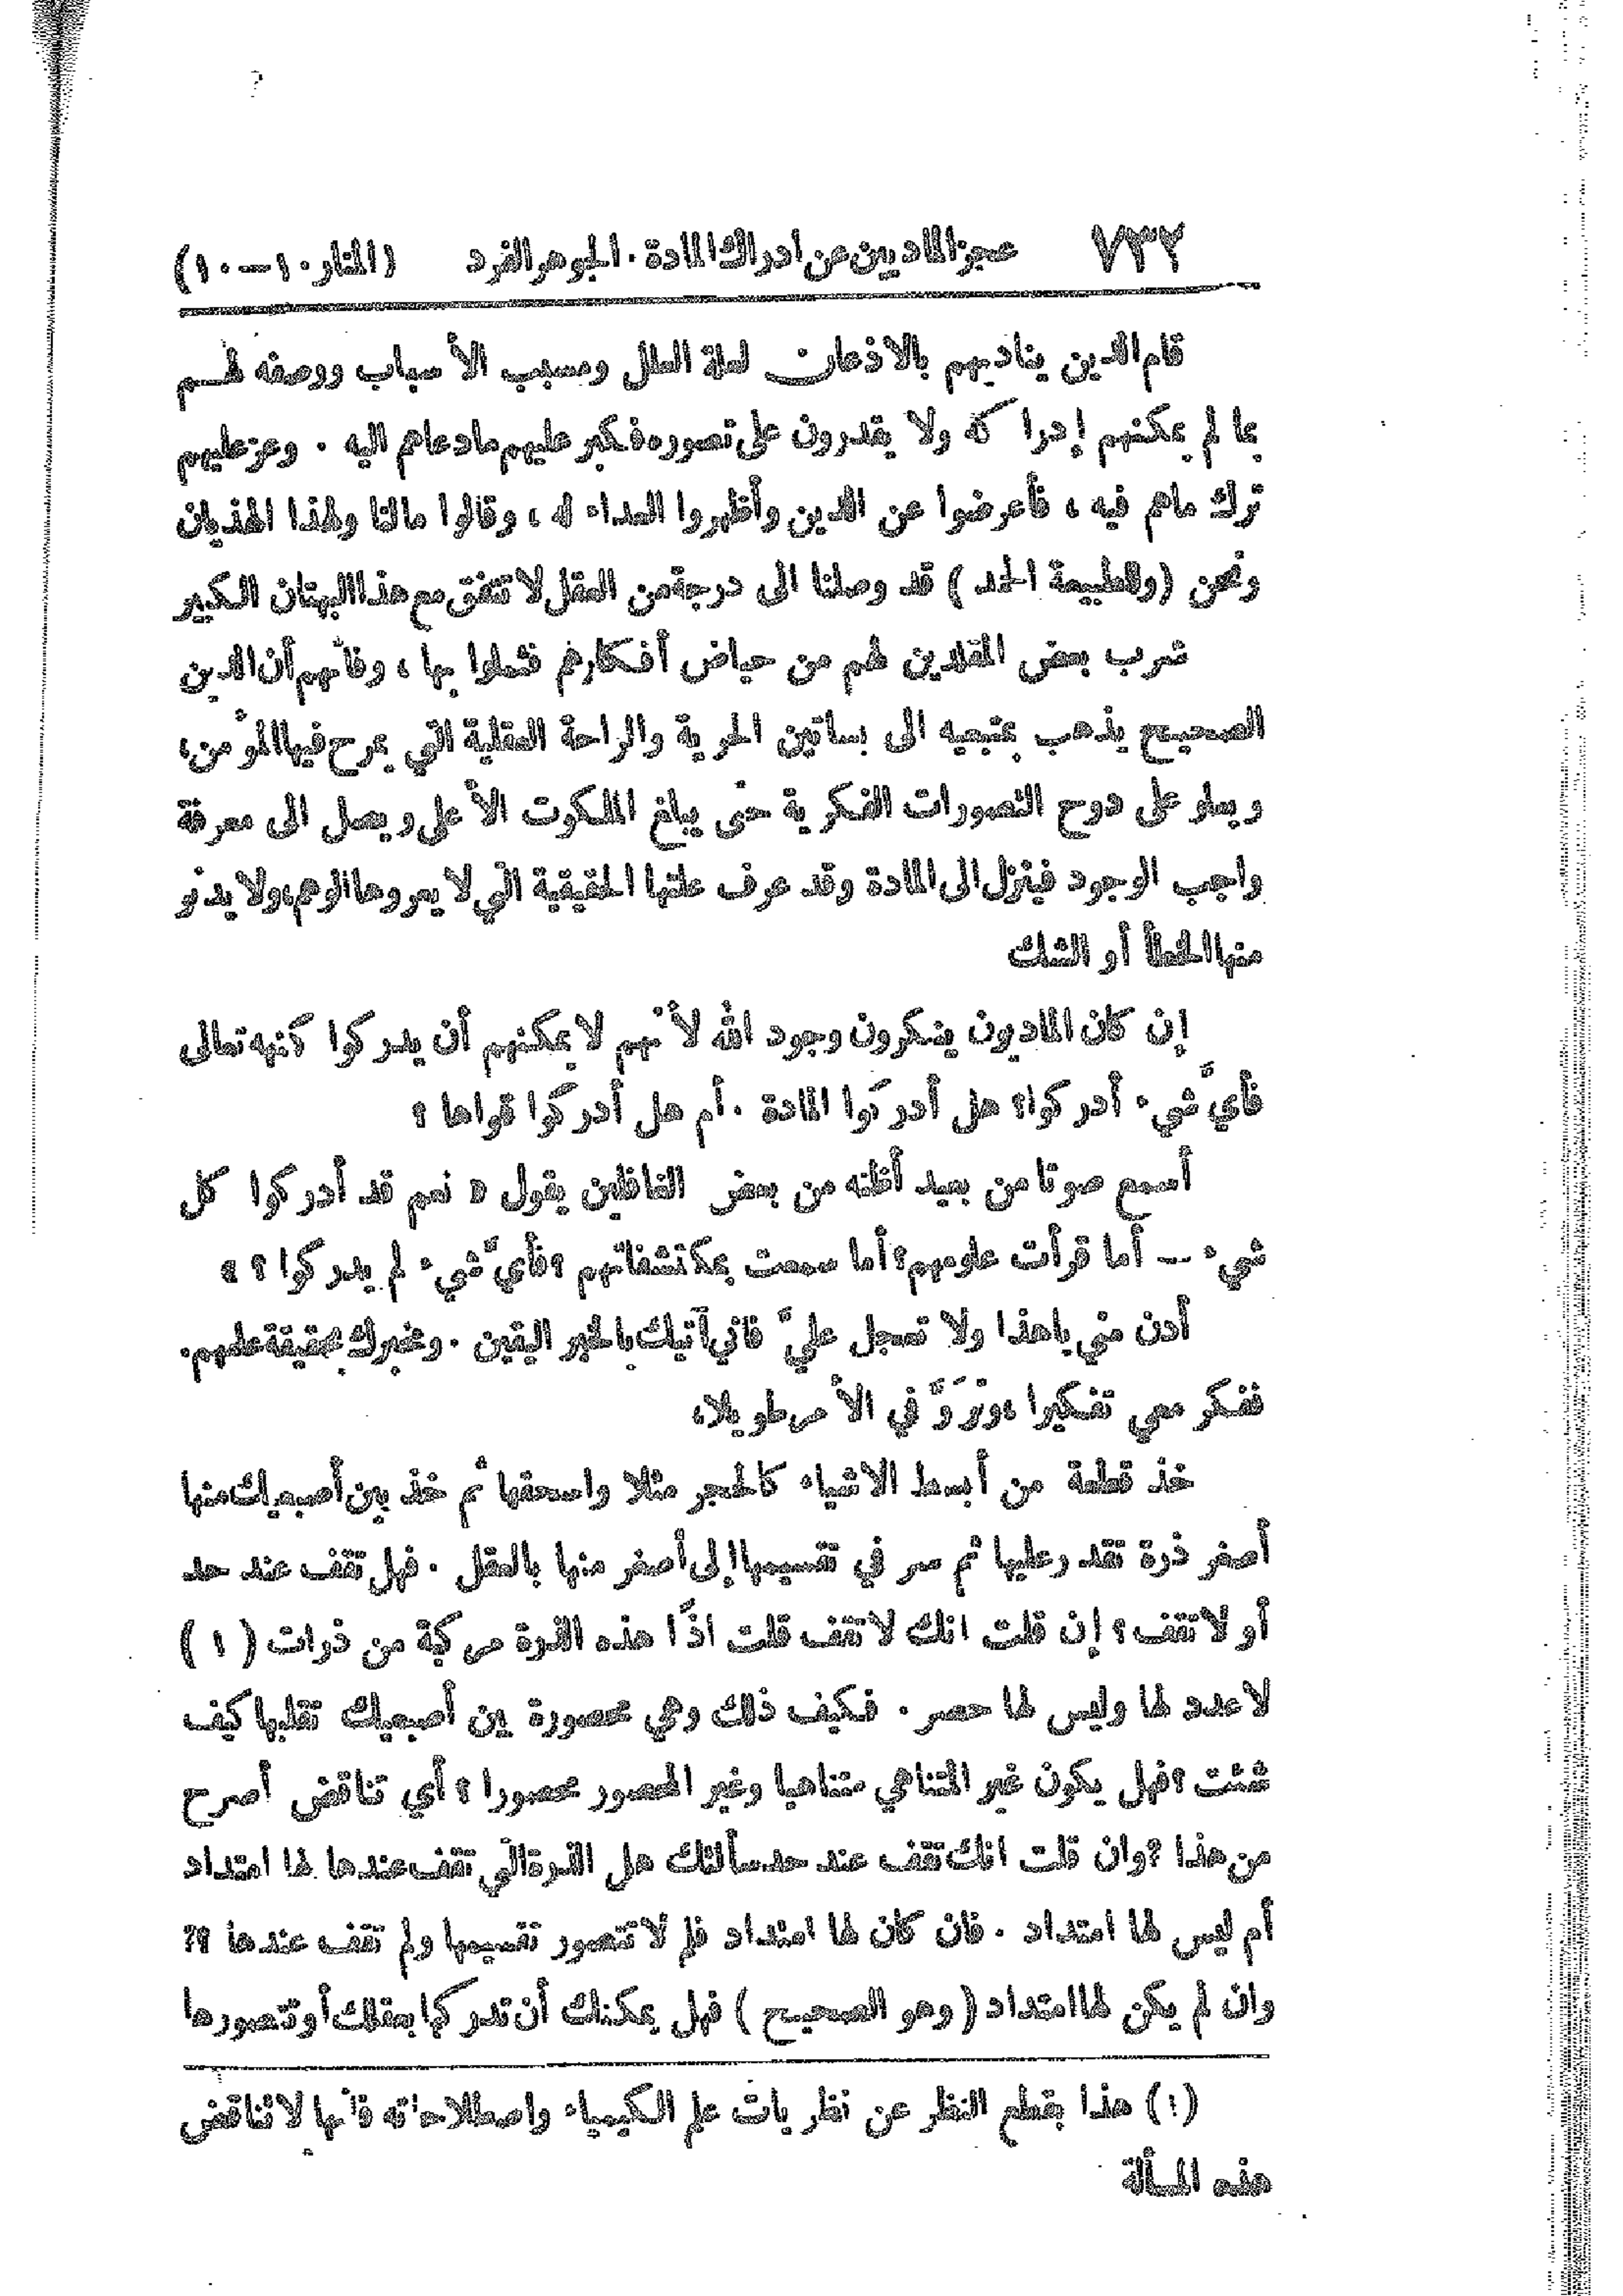 ٧٣٢ عجز الماديين عن ادراك المادة . الجوهر الفرد (المنار ١٠ — ١٠)
قام الدين يناديهم بالاذعان لعلة العلل ومسبب الأسباب ووصفه لهم
بما لم يمكنهم إدراكه ولا يقدرون على تصوره فكبر عليهم ما دعاهم اليه . وعز عليهم
ترك ماهم فيه ، فأعرضوا عن الدين وأظهروا العداء له ، وقالوا مالنا ولهذا الهذيان
ونحن (وللطبيعة الحمد) قد وصلنا الى درجة من العقل لا تتفق مع هذا البهتان الكبير
شرب بعض المقلدين لهم من حياض أفكارهم فثملوا بها ، وفاتهم أن الدين
الصحيح يذهب بمتبعيه الى بساتين الحرية والراحة العقلية التي يمرح فيها المؤمن،
ويعلو على دوح التصورات الفكرية حتى يبلغ الملكوت الأعلى ويصل الى معرفة
واجب الوجود فينزل الى المادة وقد عرف علتها الحقيقية التي لا يعروها الوهم، ولا يدنو
منها الخطأ أو الشك
إن كان الماديون ينكرون وجود الله لأنهم لا يمكنهم أن يدركوا كنهه تعالى
فأيَّ شيء أدركوا؟ هل أدركوا المادة . أم هل أدركوا قواها ؟
أسمع صوتا من بعيد أظنه من بعض الغافلين يقول « نعم قد أدركوا كل
شيء — أما قرأت علومهم؟ أما سمعت بمكتشفاتهم ؟ فأيَّ شيء لم يدركوا ؟ »
أدن مني ياهذا ولا تعجل عليَّ فاني آتيك بالخبر اليقين . ومخبرك بحقيقة علمهم.
ففكر معي تفكيرا ، وتَرَوَّ في الأمر طويلا،
خذ قطعة من أبسط الاشياء كالحجر مثلا واسحقها ثم خذ بين أصبعيك منها
أصغر ذرة تقدر عليها ثم سر في تقسيمها إلى أصغر منها بالعقل . فهل تقف عند حد
أو لا تقف ؟ إن قلت انك لا تقف قلت اذًا هذه الذرة مركبة من ذرات (١)
لا عدد لها وليس لها حصر . فكيف ذلك وهي محصورة بين أصبعيك تقلبها كيف
شئت ؟ فهل يكون غير المتناهي متناهيا وغير المحصور محصورا ؟ أي تناقض أصرح
من هذا ؟ وان قلت انك تقف عند حد سألتك هل الذرة التي تقف عندها لها امتداد
أم ليس لها امتداد . فان كان لها امتداد فلم لا تتصور تقسيمها ولم تقف عندها ؟؟
وان لم يكن لها امتداد (وهو الصحيح) فهل يمكنك أن تدركها بعقلك أو تتصورها
(١) هذا بقطع النظر عن نظريات علم الكيمياء واصطلاحاته فأنها لا تناقض
هذه المسألة